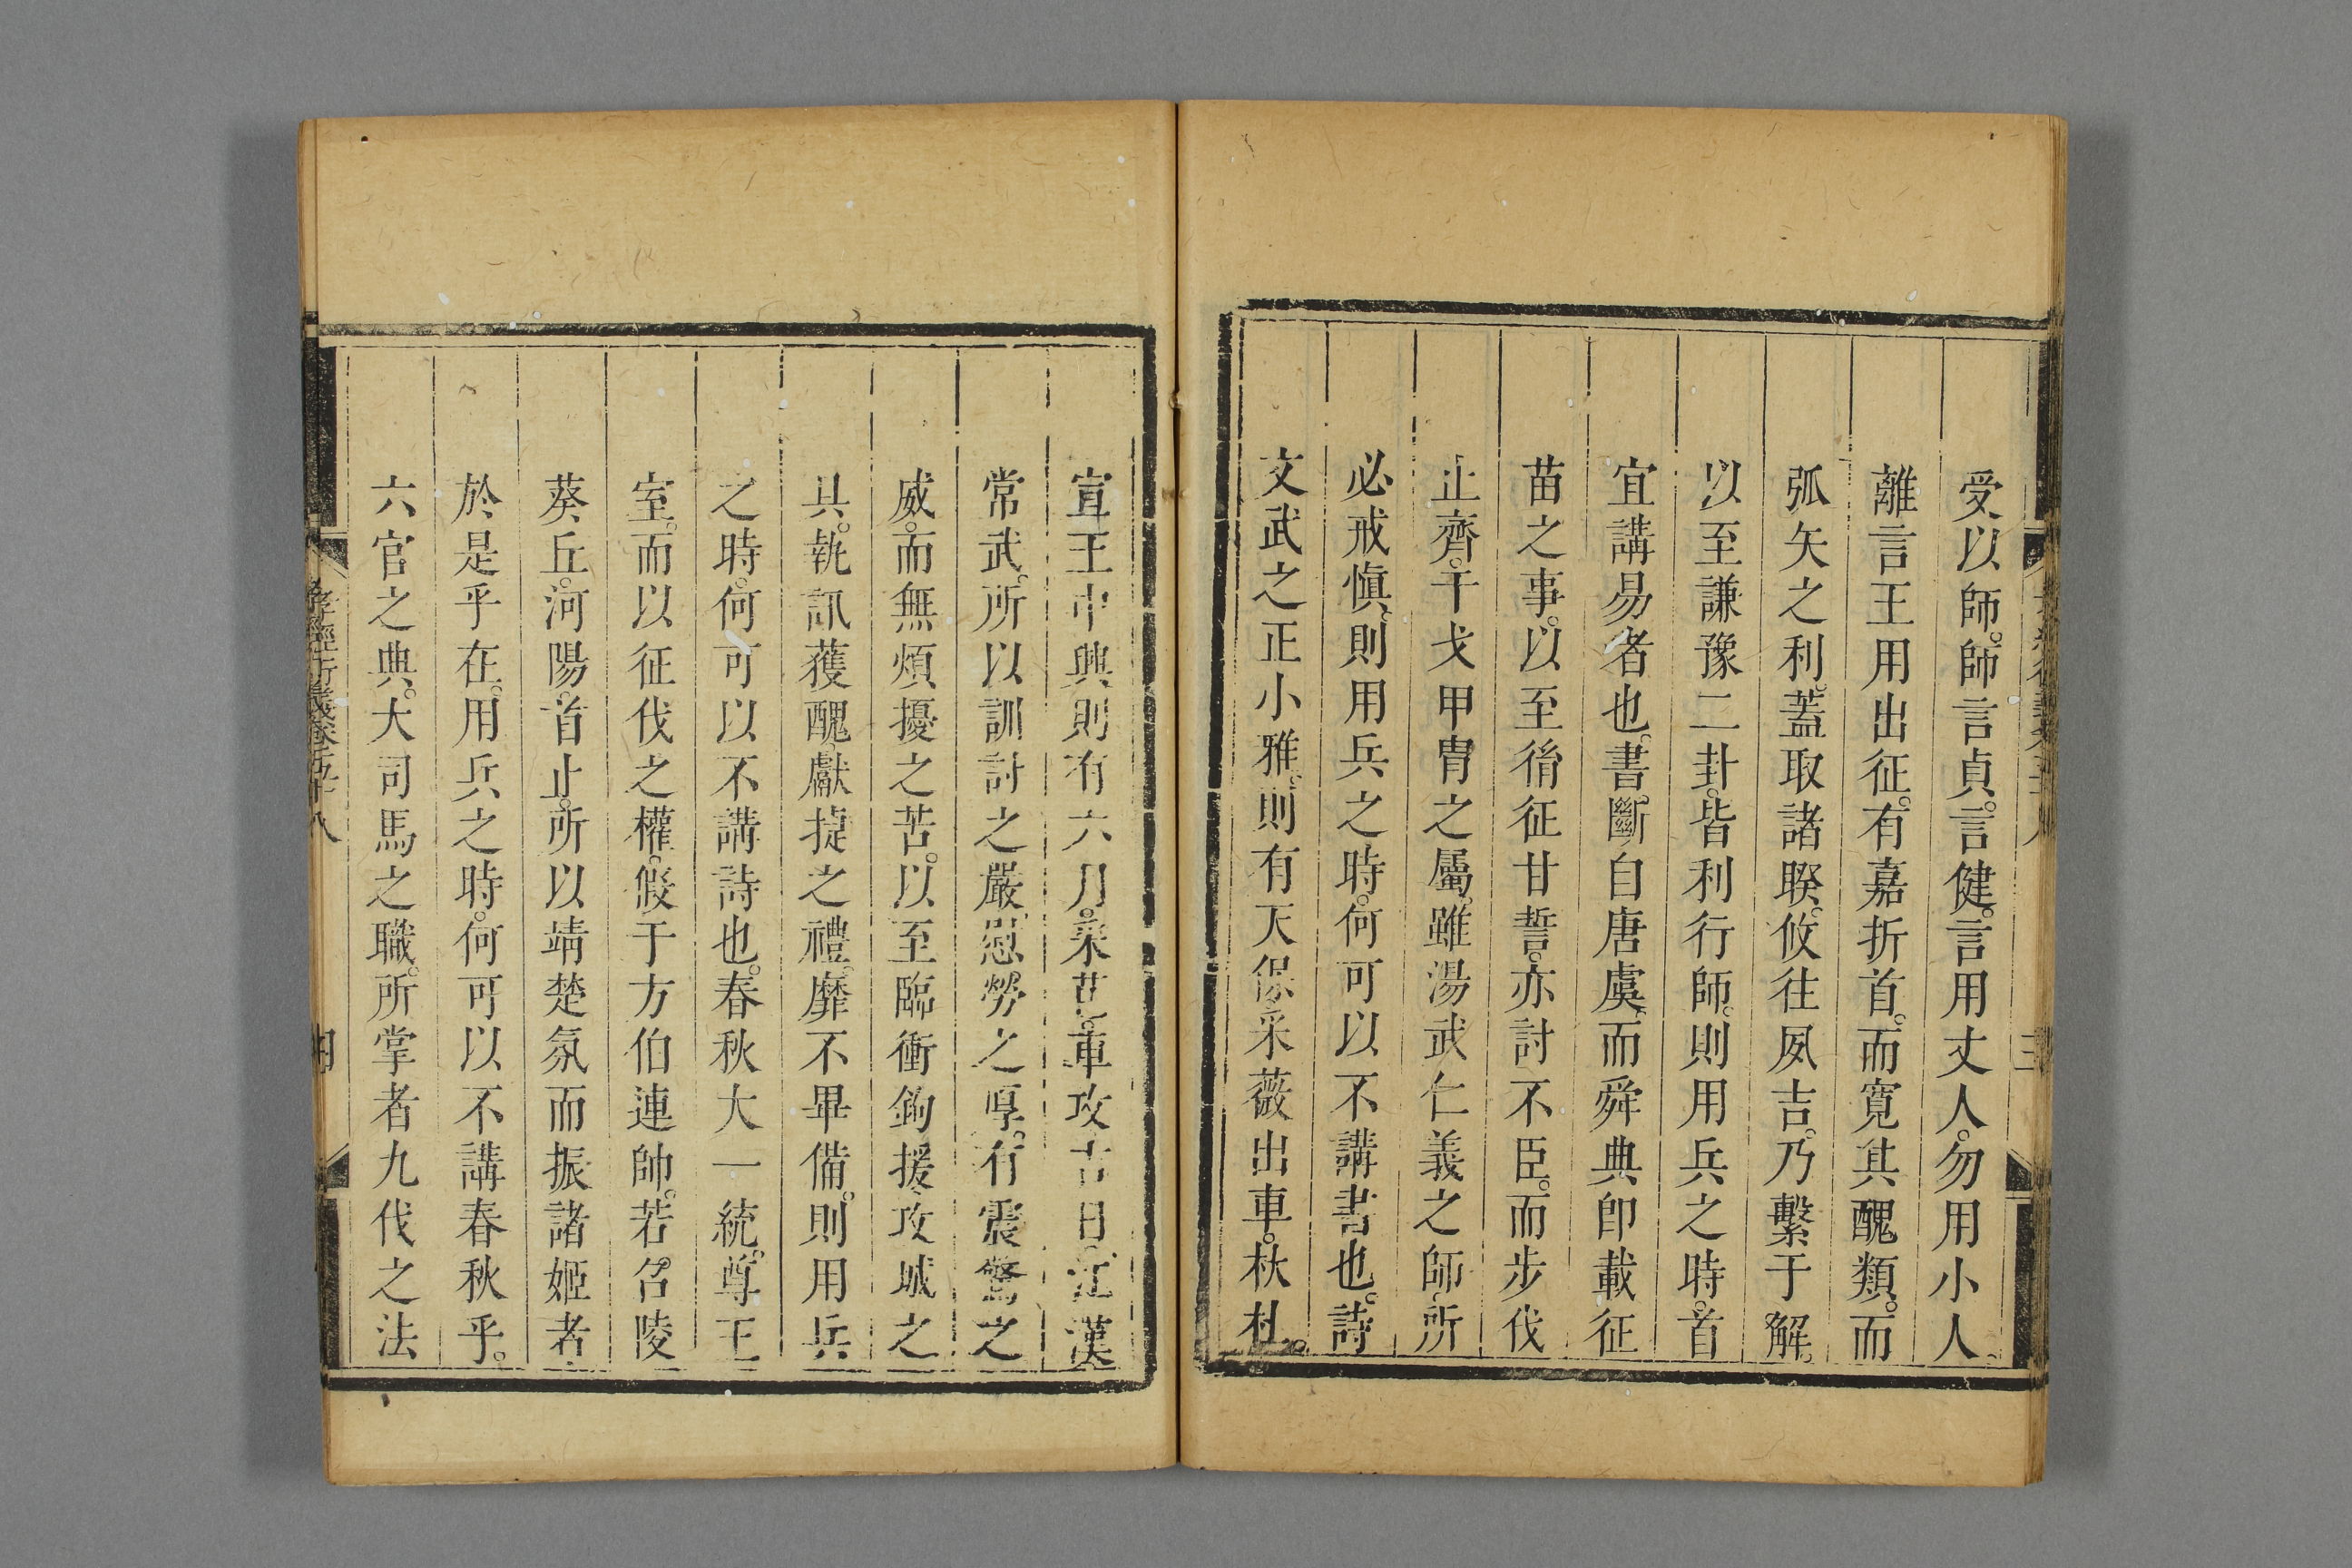 受以師。師言貞。言健。言用丈人。勿用小人。
離言王用出征。有嘉折首。而寬其醜類。而
弧矢之利。蓋取諸睽。攸往夙吉。乃繫于解。
以至謙豫二卦。皆利行師。則用兵之時。首
宜講易者也。書斷自唐虞。而舜典卽載征
苗之事。以至㣧征甘誓。亦討不臣。而步伐
止齊。干戈甲冑之屬。雖湯武仁義之師。所
必戒慎。則用兵之時。何可以不講書也。詩
文武之正小雅。則有天保采薇出車。杕杜。
宣王中興則有六月。采芑。車攻吉日。江漢
常武。所以訓討之嚴。慰勞之厚。有震驚之
威。而無煩擾之苦。以至臨衝鉤援攻城之
具。執訊獲醜。獻捷之禮。靡不畢備。則用兵
之時。何可以不講詩也。春秋大一統。尊王
室。而以征伐之權。假于方伯連帥。若召陵
葵丘。河陽。首止。所以靖楚氛而振諸姬者。
於是乎在。用兵之時。何可以不講春秋乎。
六官之典。大司馬之職。所掌者九伐之法
孝經衍義卷五十八
四